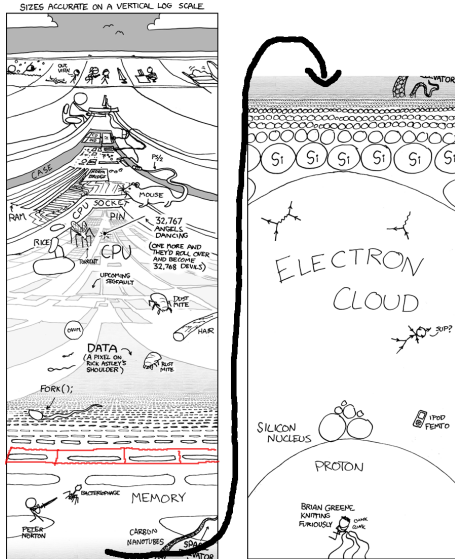 SIZES ACCURATE ON A VERTICAL LOG SCALE
CASE
PS/2
MOUSE
RAM
SOCKET
PIN
32,767
ANGELS
DANCING
(ONE MORE AND
THEY'D ROLL OVER
AND BECOME
32,768 DEVILS)
RICE
CPU
UPCOMING
SEGFAULT
DUST
MITE
OVUM
HAIR
DATA
(A PIXEL ON
RICK ASTLEY'S
SHOULDER)
RUST
MITE
FORK();
BACTERIOPHAGE
MEMORY
PETER
NORTON
CARBON
NANOTUBES
SPACE
VATOR
VATOR
Si Si Si Si Si
ELECTRON
CLOUD
SUP?
IPOD
FEMTO
SILICON
NUCLEUS
PROTON
BRIAN GREENE
KNITTING
FURIOUSLY